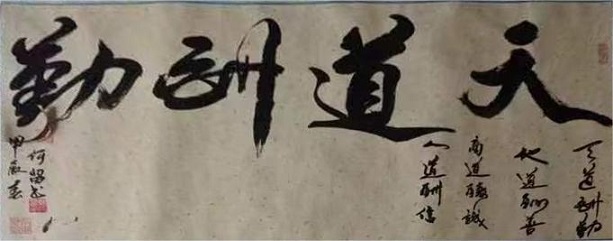 天道酬勤
天道酬勤
地道酬善
商道酬诚
人道酬信
甲辰春